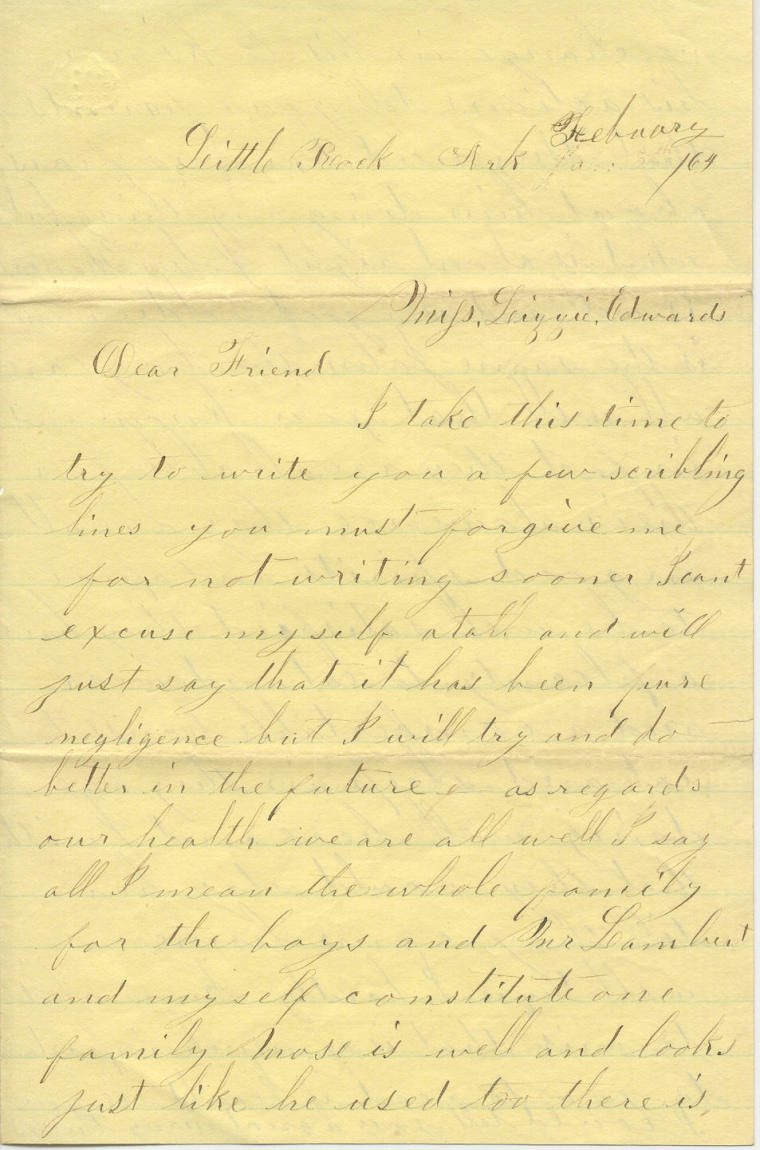 Little Rock Ark Febuary
/64
Miss, Lizzie, Edwards
Dear Friend
I take this time to
try to write you a few scribling
lines you must forgive me
for not writing sooner I cant
excuse myself atall and will
just say that it has been pure
negligence but I will try and do
better in the future as regards
our health we are all well I say
all I mean the whole family
for the boys and Mr Lambert
and myself constitute one
family Mose is well and looks
just like he used too there is,